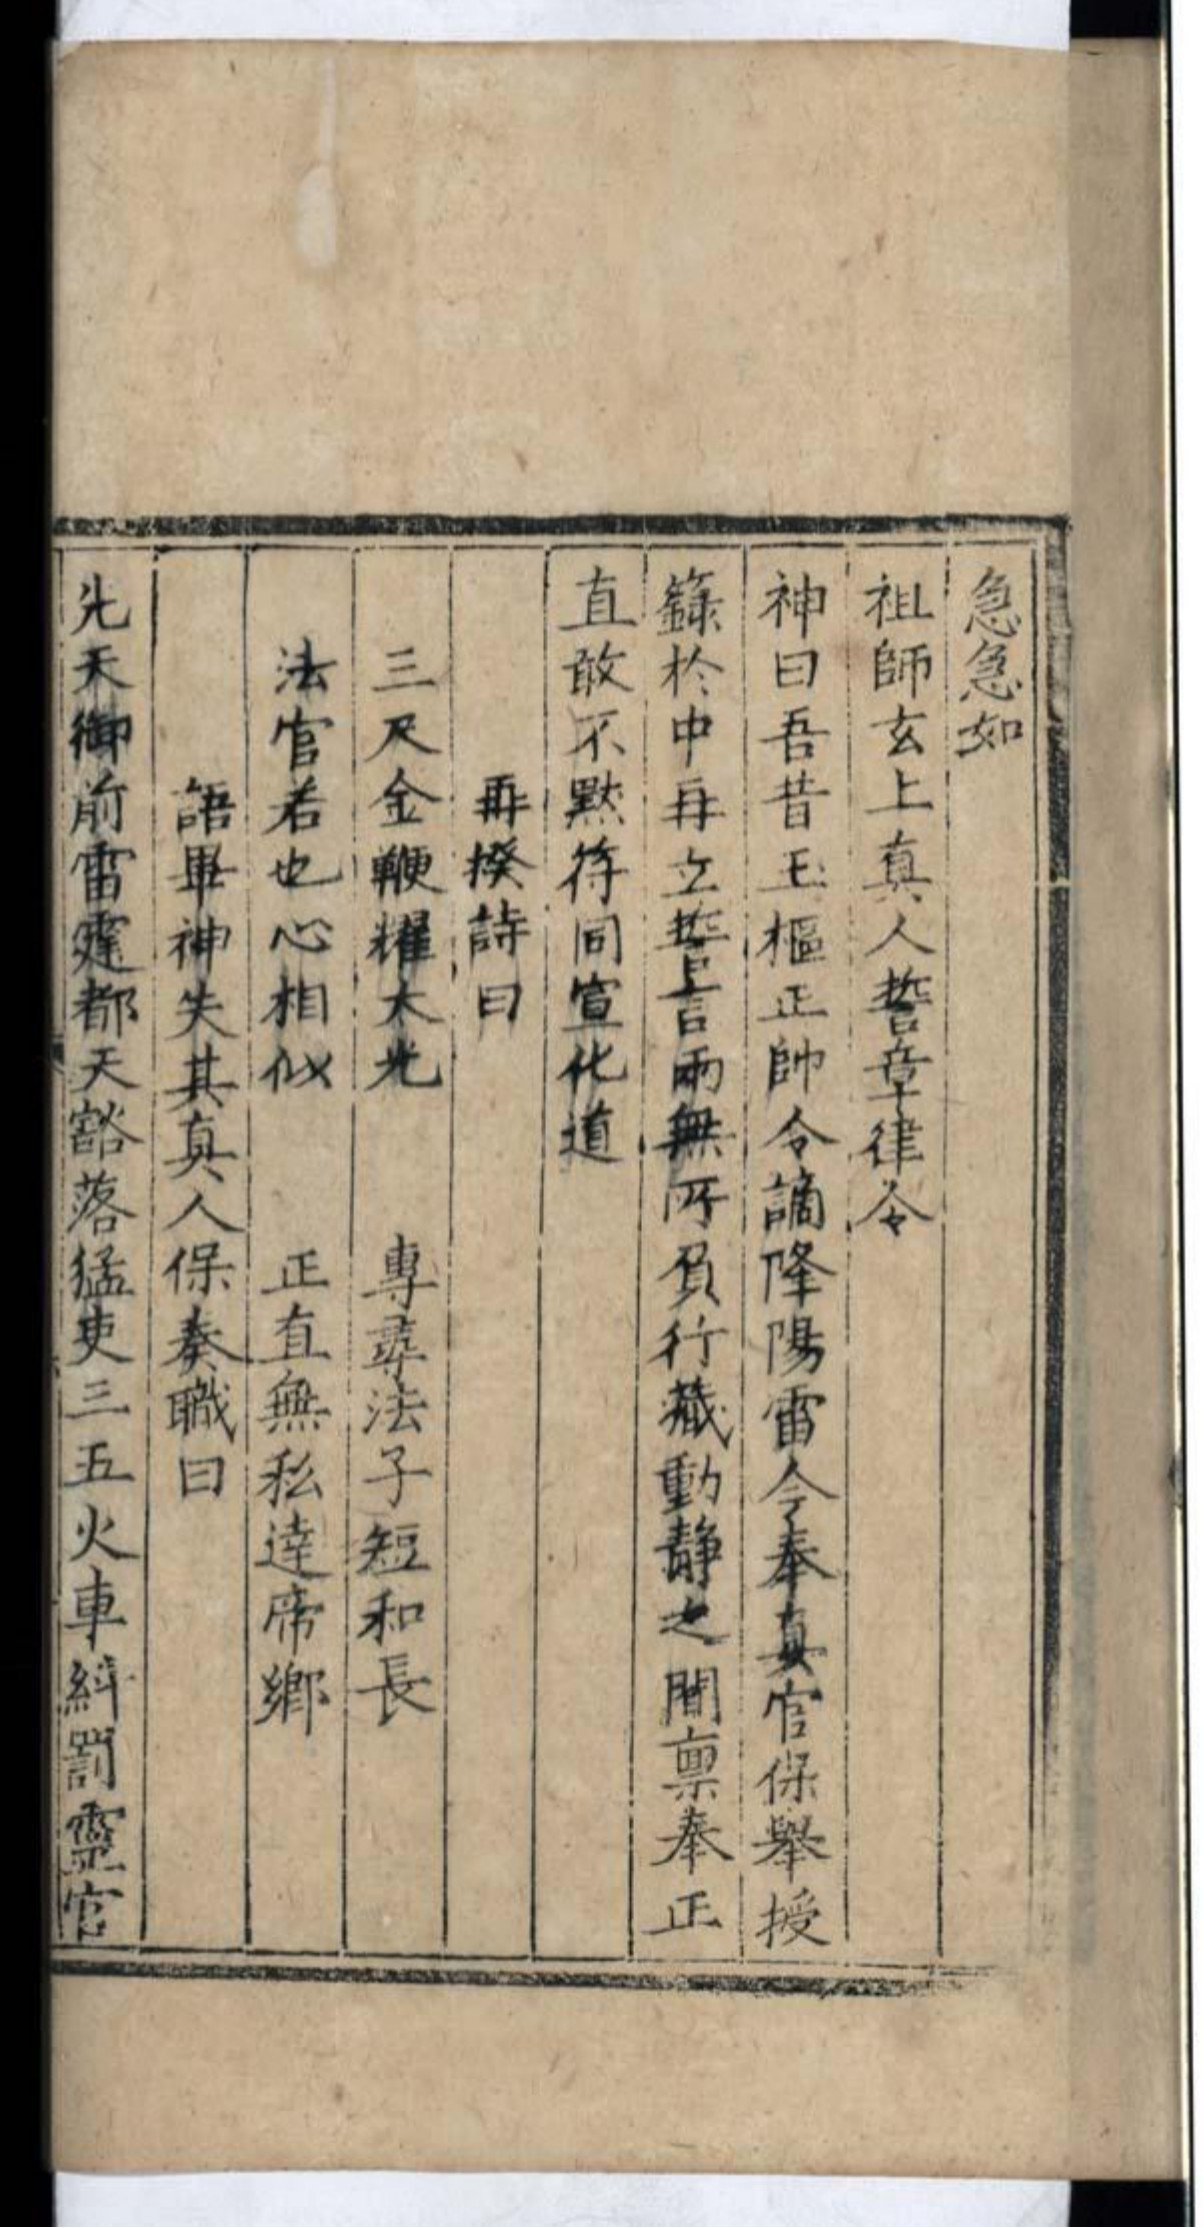 急急如
祖師玄上真人誓章律令
神曰吾昔玉樞正帥令謫降陽雷今奉真官保舉授
籙於中再立誓言兩無所負行藏動静之間禀奉正
直敢不默符同宣化道
再揆詩曰
三尺金鞭耀太光　專尋法子短和長
法官若也心相似　正直無私達帝鄉
語畢神失其真人保奏職曰
先天御前雷霆都天豁落猛吏三五火車糾罰靈官